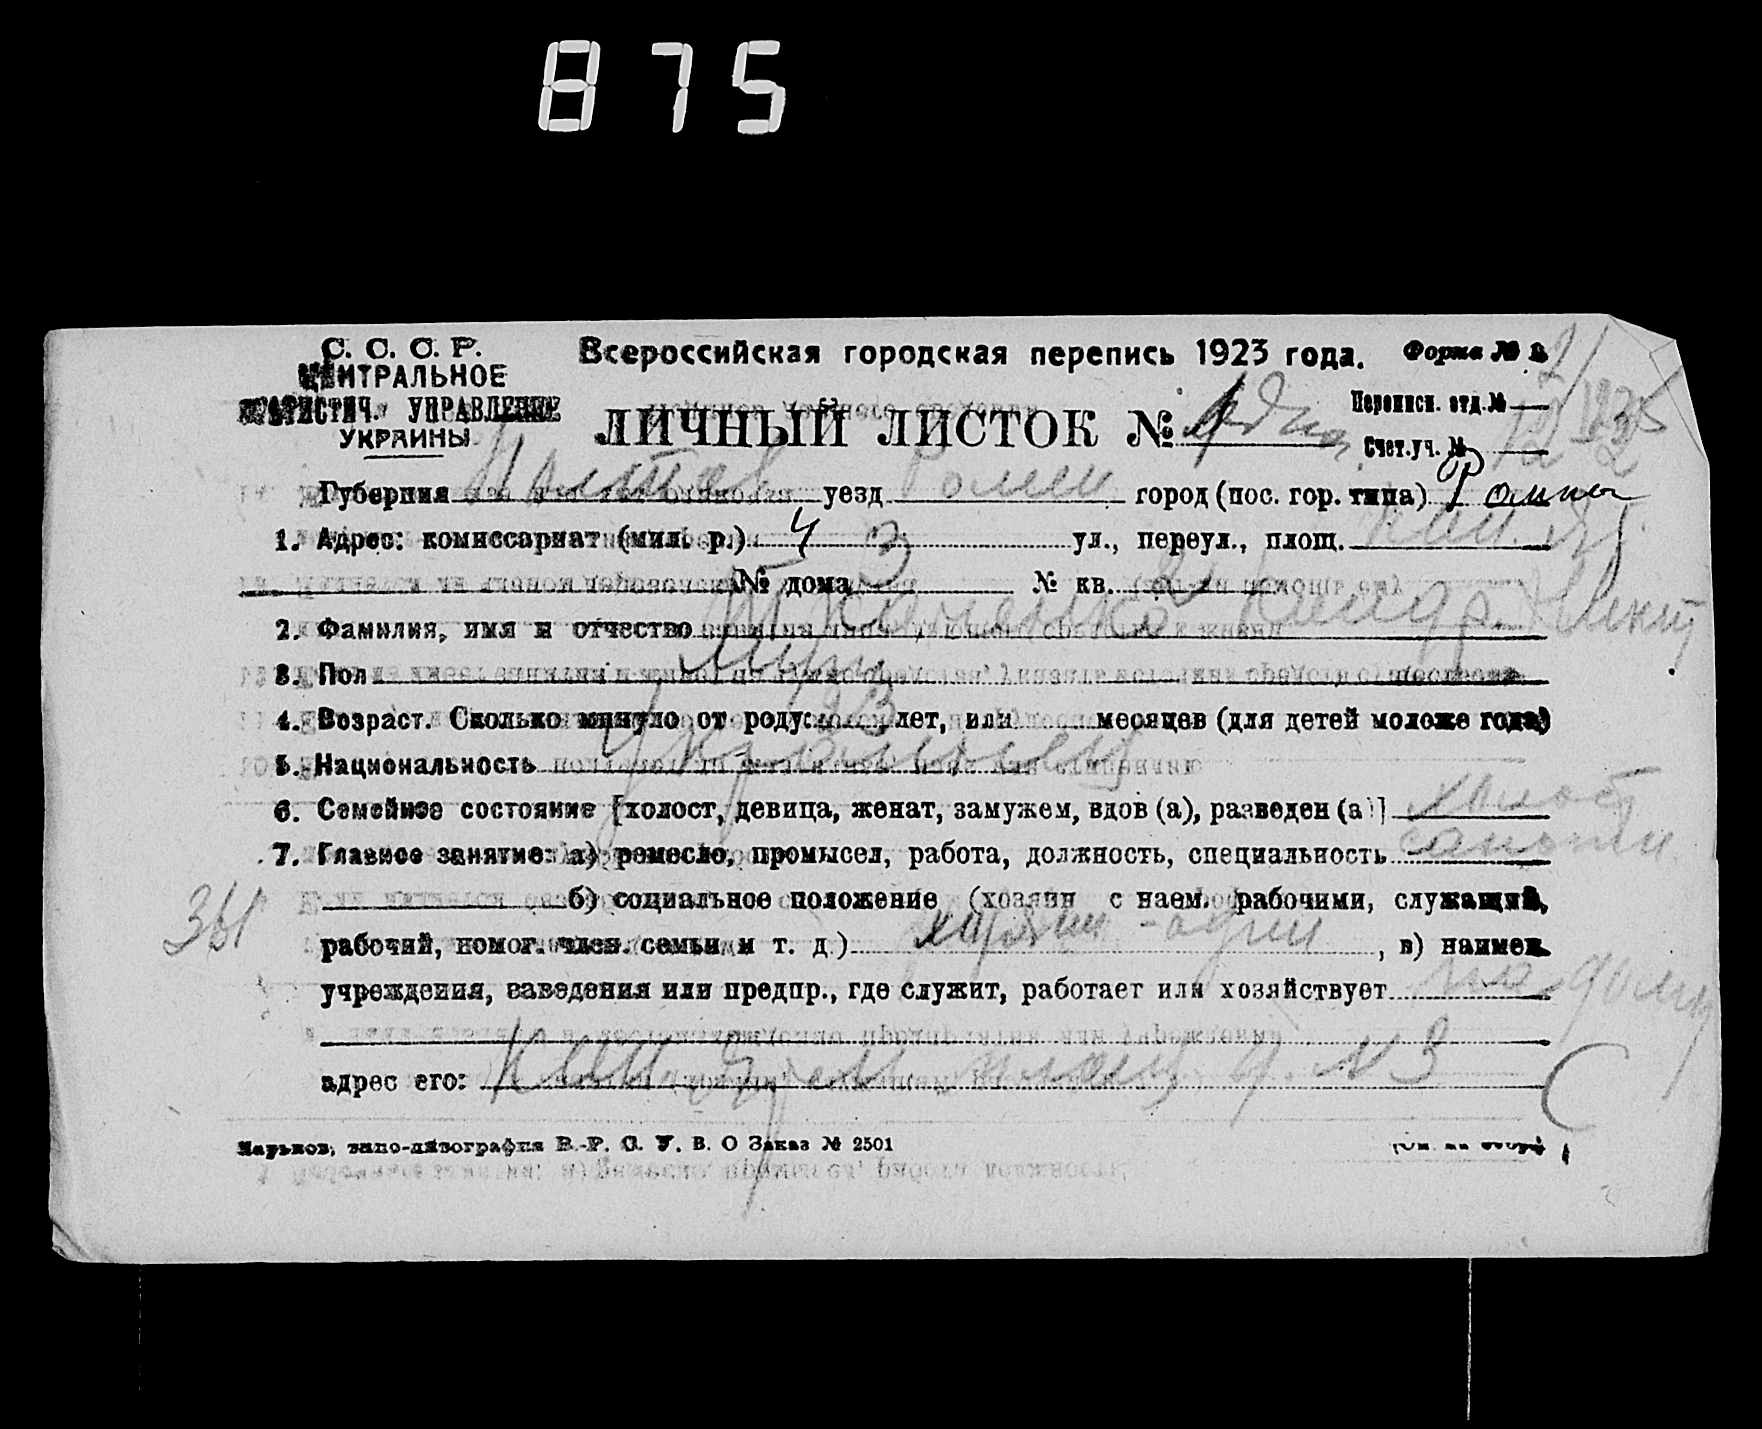 875
С. С. С. Р.
ЦЕНТРАЛЬНОЕ
СТАТИСТИЧ. УПРАВЛЕНИЕ
УКРАИНЫ
Всероссийская городская перепись 1923 года. Форма №
ЛИЧНЫЙ ЛИСТОК № 1
Переписн. отд. №
Счет. уч. №
Губерния Полтав уезд Ромен город (пос. гор. типа) Ромны
1. Адрес: комиссариат (мил. р.) 4 ул., переул., площ.
№ дома 3 № кв.
2. Фамилия, имя и отчество Ткаченко
3. Пол муж
4. Возраст. Сколько минуло от роду: 23 лет, или месяцев (для детей моложе года)
5. Национальность Украинец
6. Семейное состояние [холост, девица, женат, замужем, вдов (а), разведен (а)] холост
7. Главное занятие: а) ремесло, промысел, работа, должность, специальность сапожн
б) социальное положение (хозяин с наем. рабочими, служащий,
рабочий, помог. член. семьи и т. д.) хозяин - один, в) наимен.
учреждения, заведения или предпр., где служит, работает или хозяйствует на дому
адрес его: площ д. № 3
Харьков, типо-литография В.-Р. С. У. В. О Заказ № 2501